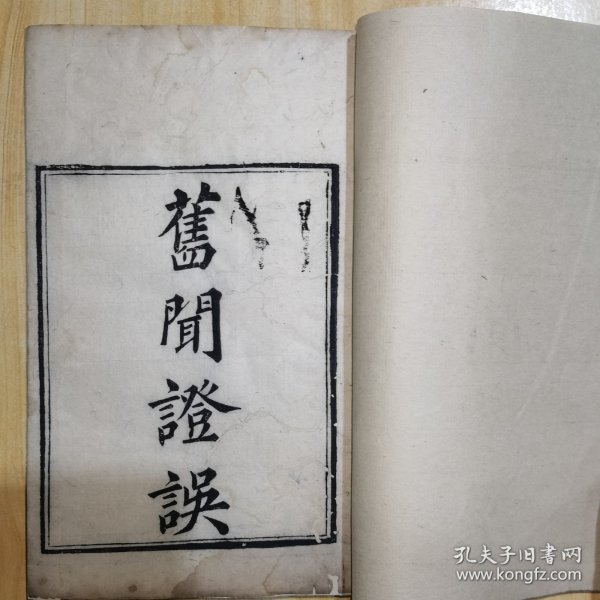 舊聞證誤
孔夫子旧书网
www.kongfz.com